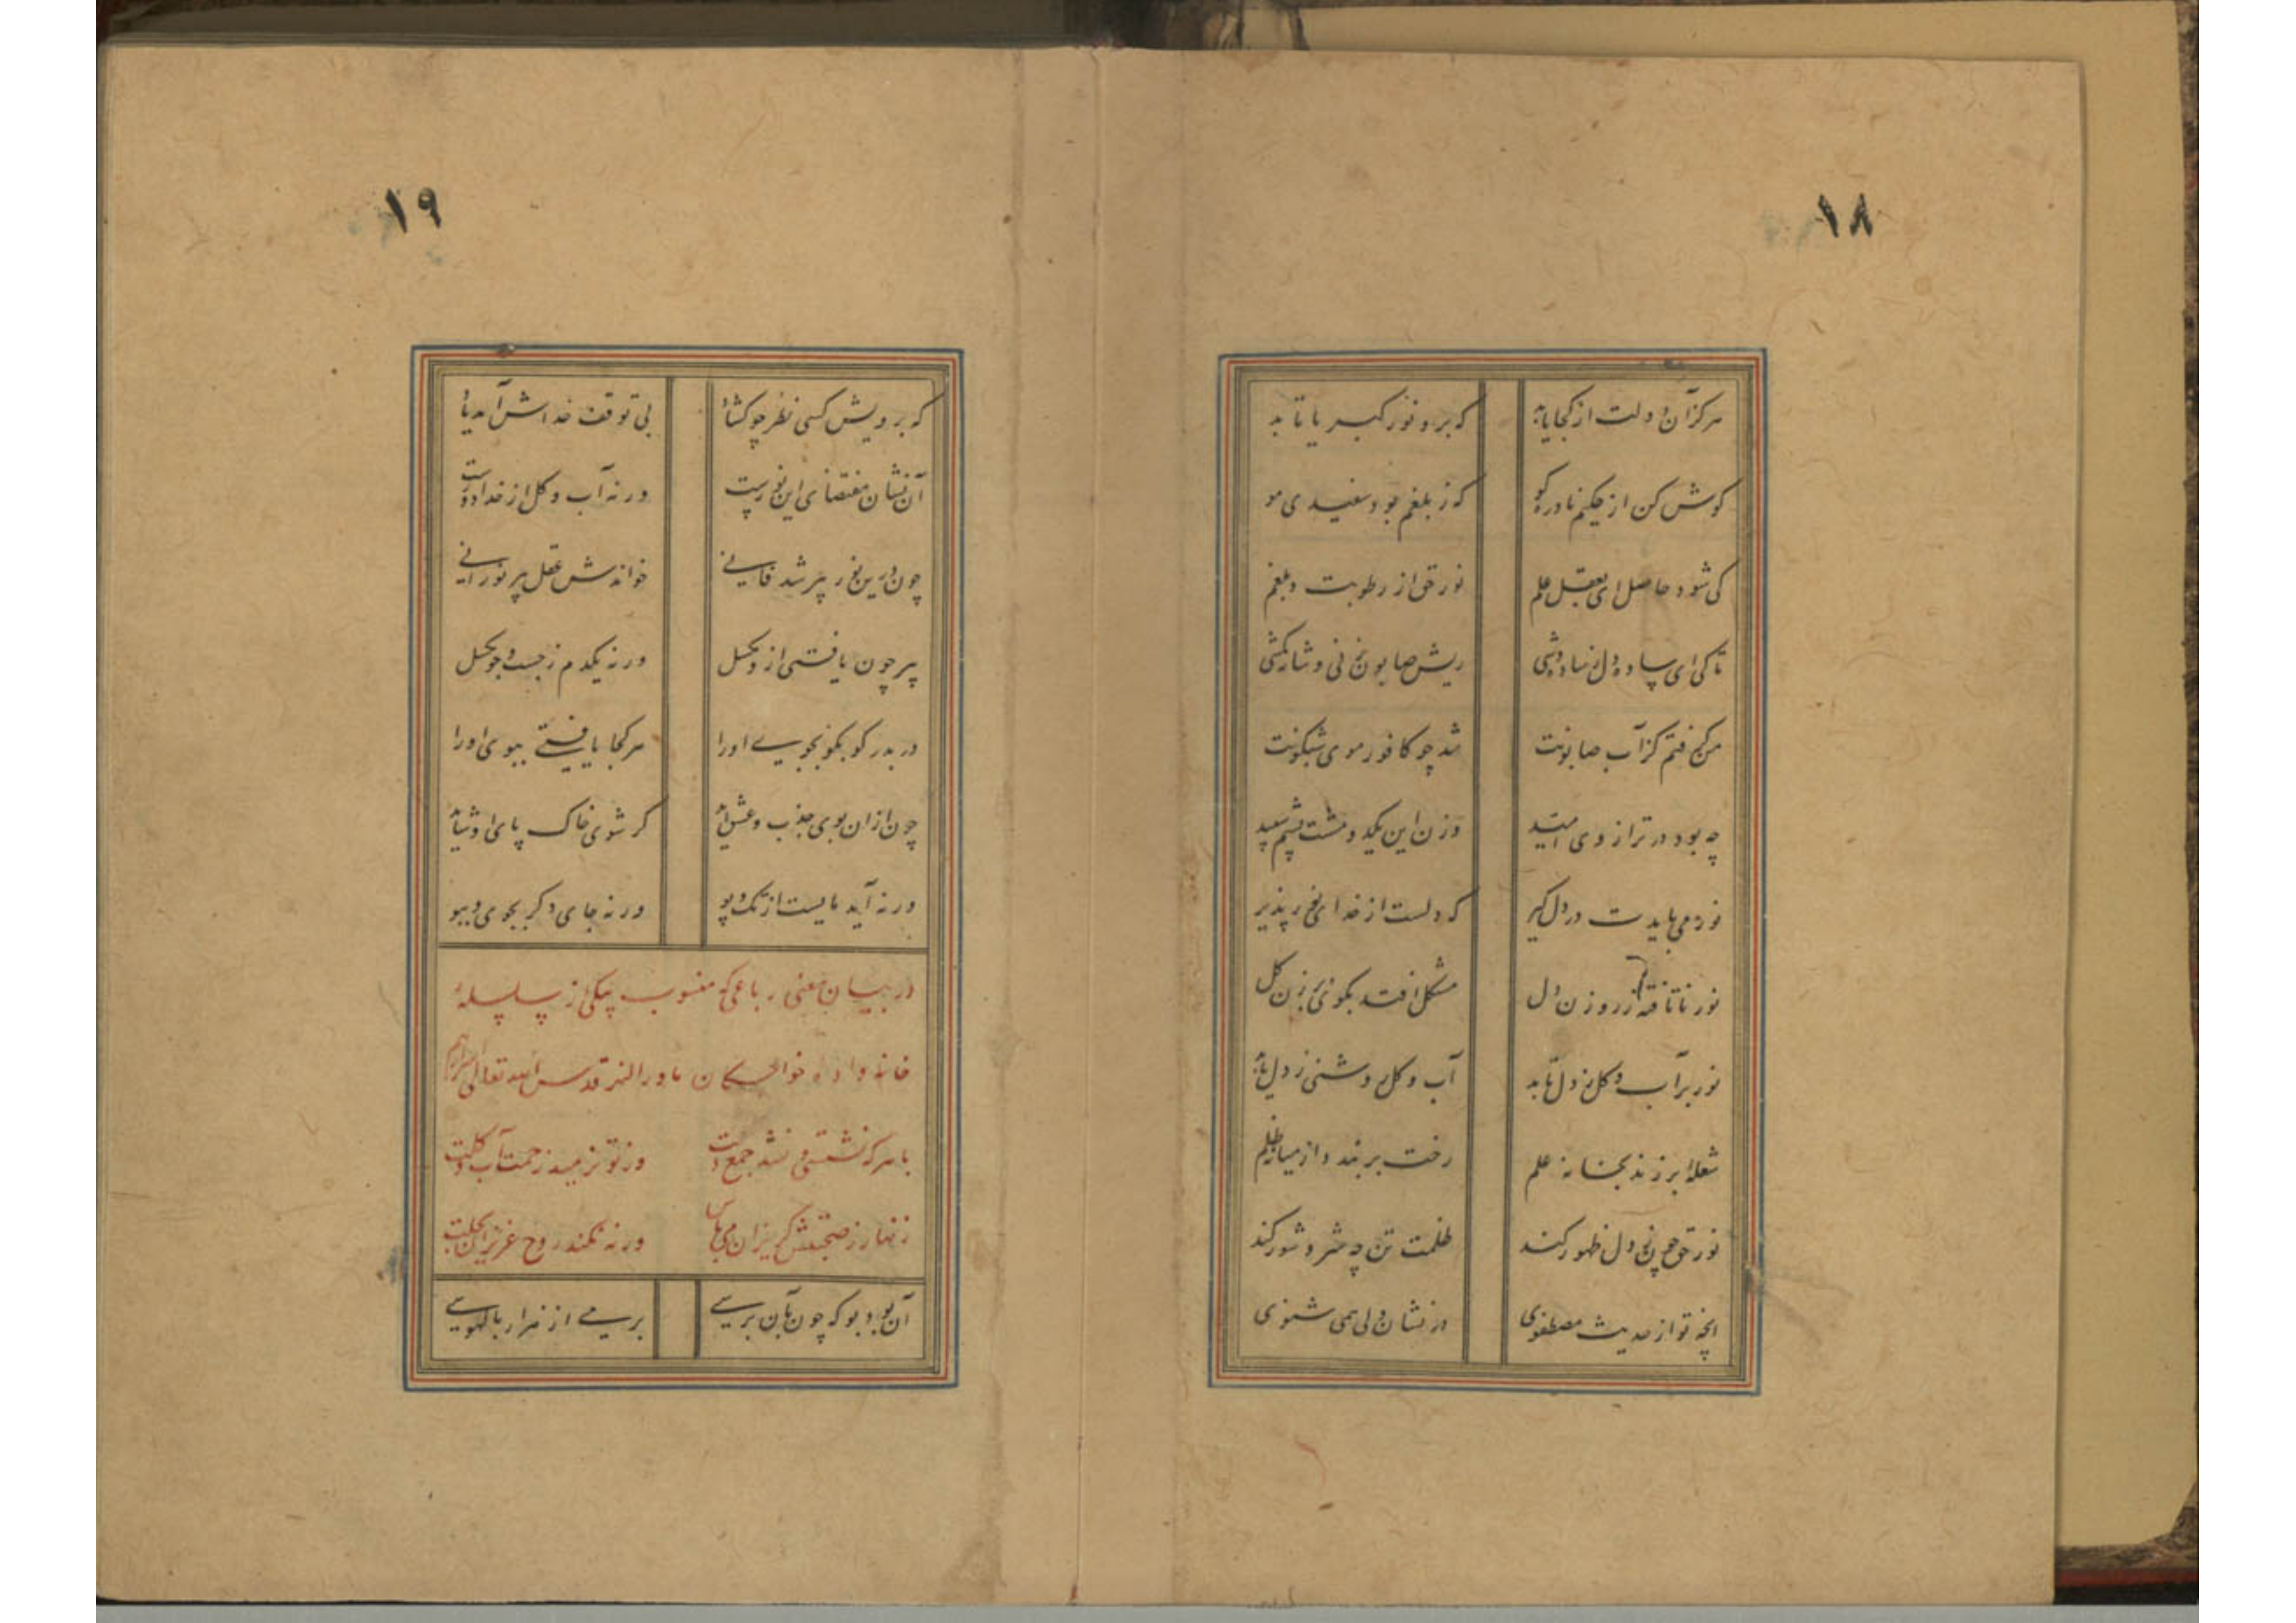 ۱۸
هرکز آن دولت از کجا یابد که برو نور کبریا تابد
کوش کن از حکیم نادره کو که ز بلغم بود سفیدی مو
کی شود حاصل ای بعقل علم نور حق از رطوبت و بلغم
تا کی ای ساده دل ز ساده وشی ریش صابون زنی و شانه کشی
من کرفتم کز آب صابونت شد چو کافور موی شبکونت
چه بود در ترازوی امید وزن این یکدو مشت پشم سپید
نور می بایدت در دل کیر که دلست از خدای نور پذیر
نور ناتافته ز روزن دل مشکل افتد بکونه بر زن کل
نور بر آب و کل ز دل تابد آب و کل روشنی ز دل یابد
شعله ابر زند بخانه علم رخت بر بندد از میانه ظلم
نور حق چون ز دل ظهور کند ظلمت تن چه شر و شور کند
انچه تو از حدیث مصطفوی در نشان ولی همی شنوی
۱۹
که برویش کسی نظر چو کشاد بی توقف خداش آمد یاد
آن نشان مقتضای این نورست ورنه آب و کل از خدا دورست
چون درین نور پیر شد فانی خواندش عقل پیر نورانی
پیر چون یافتی ازو مکسل ورنه یکدم ز جست و جو مکسل
در بدر کو بکو بجوی او را هر کجا یافتی ببوی او را
چون ازان بوی جذب و عشق آید کر شوی خاک پای او شاید
ورنه آید مایست از تک و پو ورنه جای دکر بجوی و ببو
در بیان معنی رباعی که منسوب بیکی از سلسله
خانواده خواجکان ماوراالنهر قدس الله تعالی اسرارهم
با هر که نشستی و نشد جمع دلت وز تو نرمید زحمت آب و کلت
زنهار ز صحبتش کریزان می باش ورنه نکند روح عزیزان بحلت
آن بود بو که چون بآن برسی برمی از هزار بالهوسی